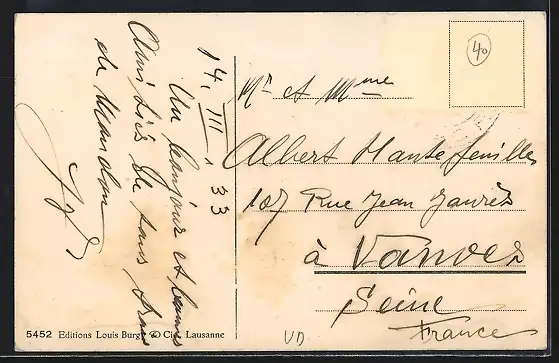 14. III. 33
Un bonjour et bonnes
Amitiés de tous deux
de
Mr et Mme
Albert Hautefeuilles
107 Rue Jean Jaurès
à Vanves
Seine
France
40
VD
5452 Editions Louis Burgy & Cie, Lausanne